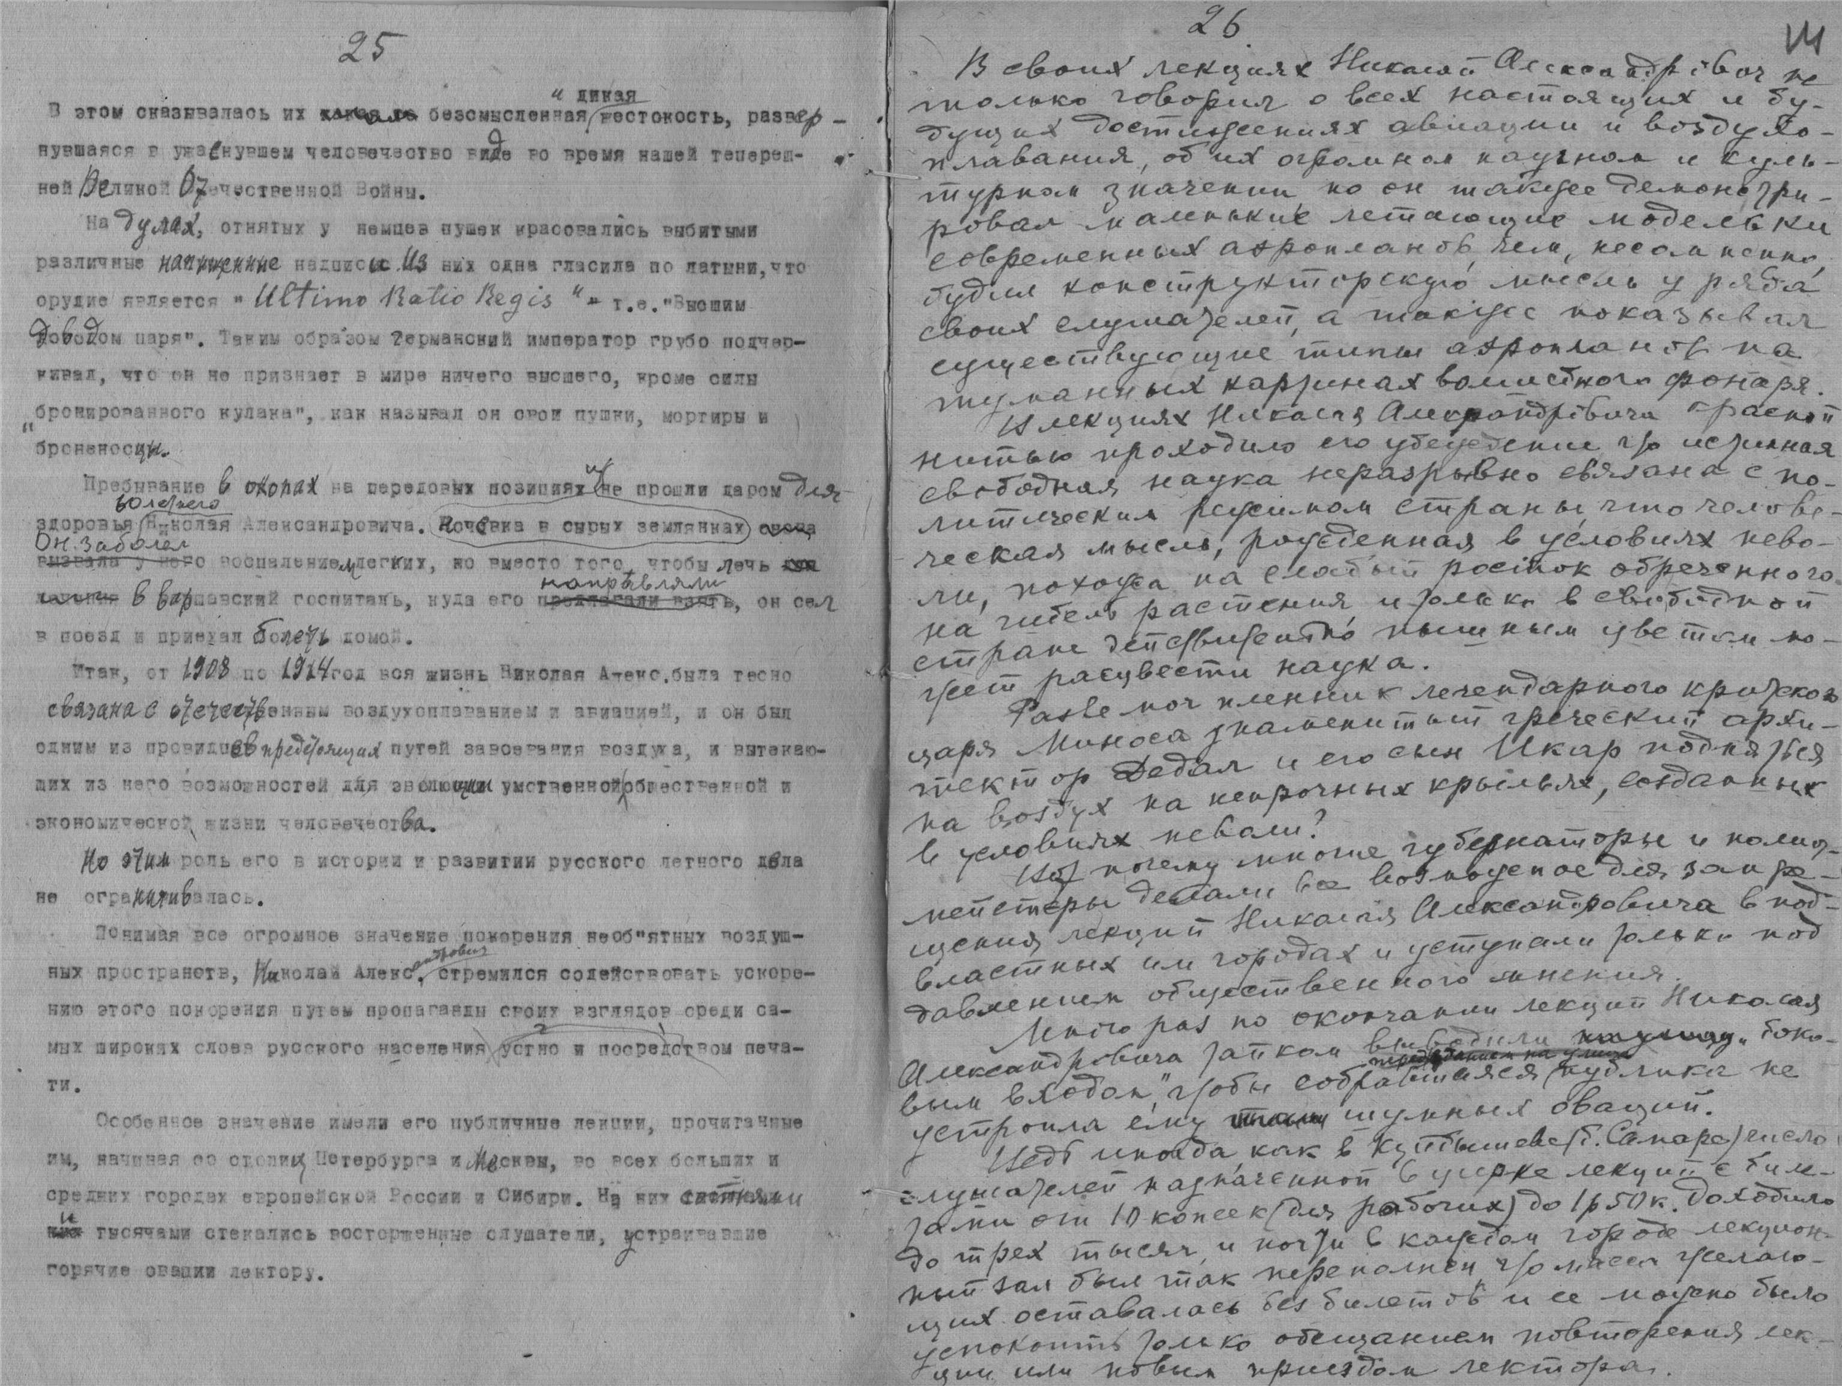 25
" дикая
В этом сказывалась их какая то безсмысленная жестокость, развер-
нувшаяся в ужаснувшем человечество виде во время нашей тепереш-
ней Великой Отечественной Войны.
На дулах, отнятых у немцев пушек красовались выбитыми
различные напыщенные надписи. Из них одна гласила по латыни, что
орудие является "Ultimo Ratio Regis" - т.е. "Высшим
доводом царя". Таким образом Германский император грубо подчер-
кивал, что он не признает в мире ничего высшего, кроме силы
"бронированного кулака", как называл он свои пушки, мортиры и
броненосцы.
Пребывание в окопах на передовых позициях не прошли даром для
здоровья Николая Александровича. Ночевка в сырых землянках
Он заболел
вызвала у него воспалением легких, но вместо того, чтобы лечь
направляли
в варшавский госпиталь, куда его предлагали взять, он сел
в поезд и приехал болеть домой.
Итак, от 1908 по 1914 год вся жизнь Николая Алекс. была тесно
связана с отечественным воздухоплаванием и авиацией, и он был
одним из провидцев предстоящих путей завоевания воздуха, и вытекаю-
щих из него возможностей для эволюции умственной общественной и
экономической жизни человечества.
Но этим роль его в истории и развитии русского летного дела
не ограничивалась.
Понимая все огромное значение покорения необ"ятных воздуш-
ных пространств, Николай Александрович стремился содействовать ускоре-
нию этого покорения путем пропаганды своих взглядов среди са-
мых широких слоев русского населения устно и посредством печа-
ти.
Особенное значение имели его публичные лекции, прочитанные
им, начиная со столиц Петербурга и Москвы, во всех больших и
средних городах европейской России и Сибири. На них сотнями
и тысячами стекались восторженные слушатели, устраивавшие
горячие овации лектору.
26
В своих лекциях Николай Александрович не
только говорил о всех настоящих и бу-
дущих достижениях авиации и воздухо-
плавания, об их огромном научном и куль-
турном значении но он также демонстри-
ровал маленькие летающие модельки
современных аэропланов, чем, несомненно,
будил конструкторскую мысль у ряда
своих слушателей, а также показывал
существующие типы аэропланов на
туманных картинах волшебного фонаря.
В лекциях Николая Александровича красной
нитью проходило его убеждение что истинная
свободная наука неразрывно связана с по-
литическим режимом страны, что челове-
ческая мысль, рожденная в условиях нево-
ли, похожа на слабый росток обреченного
на гибель растения и только в свободной
стране действительно пышным цветком мо-
жет расцвести наука.
Разве мог пленник легендарного критского
царя Миноса знаменитый греческий архи-
тектор Дедал и его сын Икар подняться
на воздух на непрочных крыльях, созданных
в условиях неволи?
Вот почему многие губернаторы и полиц-
мейстеры делали все возможное для запре-
щения лекций Николая Александровича в под-
властных им городах и уступали только под
давлением общественного мнения.
Много раз по окончании лекций Николая
Александровича тайком выводили "боко-
вым входом", чтобы собравшаяся публика не
устроила ему шумных оваций.
Ведь иногда, как в Куйбышеве (б. Самаре) число
слушателей назначенной в цирке лекции с биле-
тами от 10 копеек (для рабочих) до 1р 50к. доходило
до трех тысяч, и почти в каждом городе лекцион-
ный зал был так переполнен что масса желаю-
щих оставалась без билетов и ее можно было
успокоить только обещанием повторения лек-
ции или новым приездом лектора.